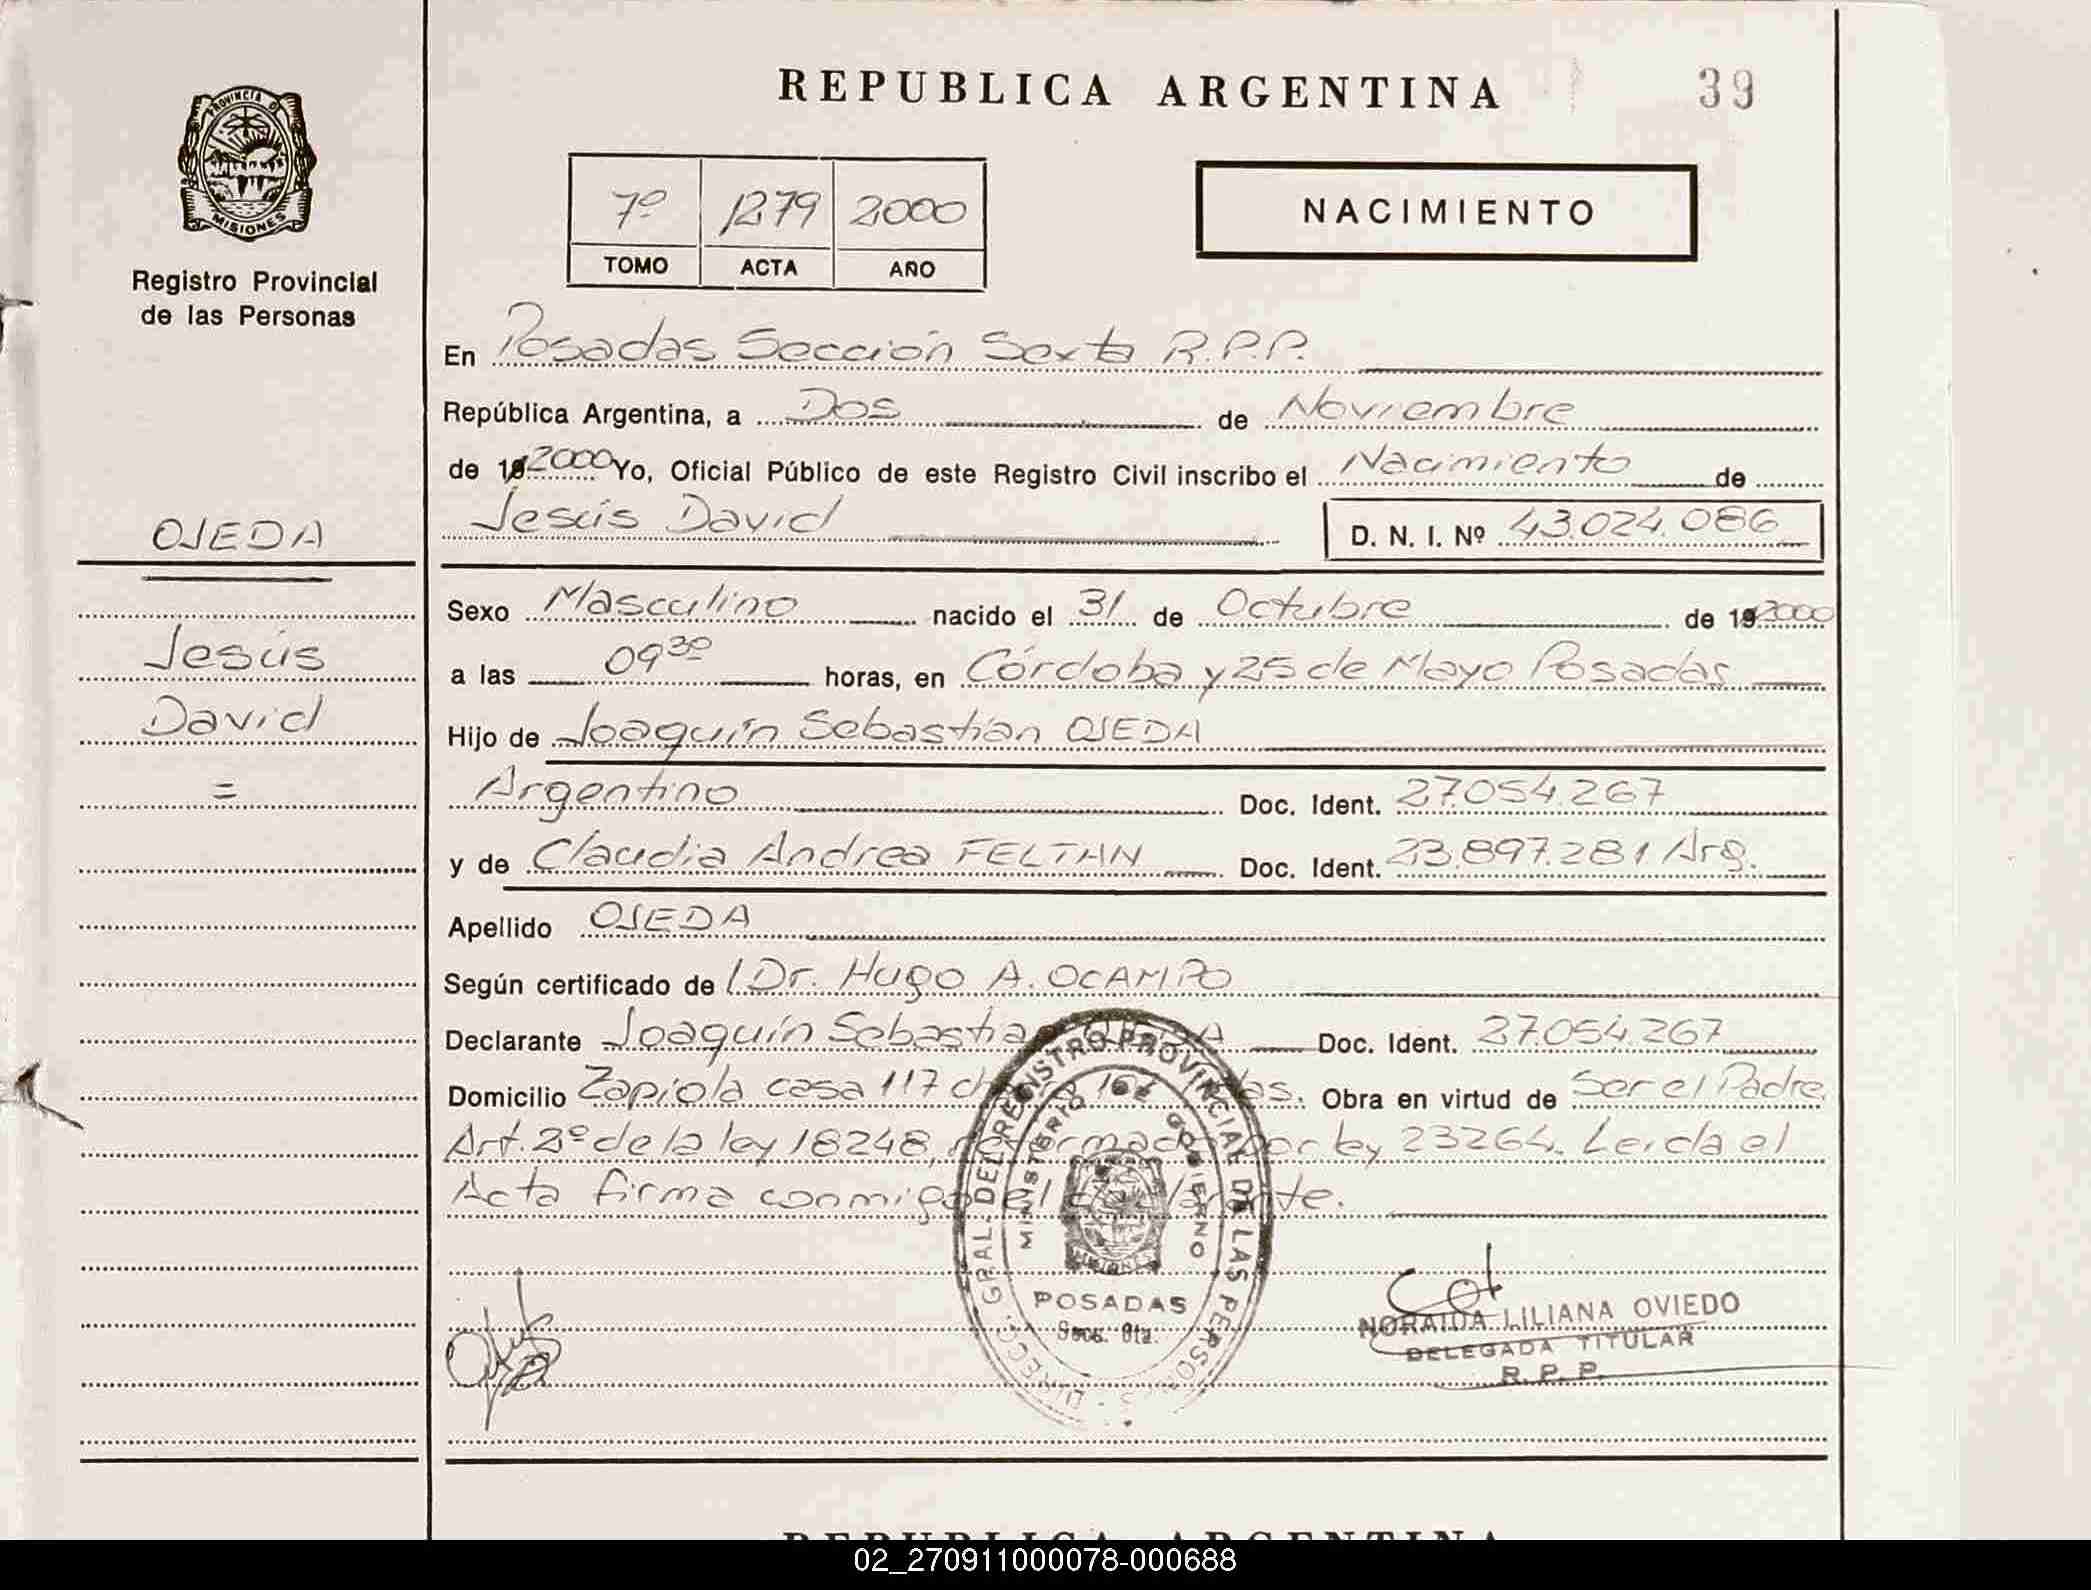 REPUBLICA ARGENTINA
39
PROVINCIA D
MISIONES
Registro Provincial
de las Personas
7º 1279 2000
TOMO ACTA AÑO
NACIMIENTO
En Posadas Sección Sexta R.P.P.
República Argentina, a Dos de Noviembre
de 19 2000 Yo, Oficial Público de este Registro Civil inscribo el Nacimiento de
Jesús David D. N. I. Nº 43.024.086
OJEDA
Jesús
David
=
Sexo Masculino nacido el 31 de Octubre de 19 2000
a las 09 30 horas, en Córdoba y 25 de Mayo Posadas
Hijo de Joaquín Sebastián OJEDA
Argentino Doc. Ident. 27.054.267
y de Claudia Andrea FELTAN Doc. Ident. 23.897.281 Arg.
Apellido OJEDA
Según certificado de l Dr. Hugo A. OCAMPO
Declarante Joaquín Sebastian OJEDA Doc. Ident. 27.054.267
Domicilio Zapiola casa 117 Obra en virtud de Ser el Padre.
Art. 2º de la ley 18248, reformado por ley 23264. Leida el
Acta firma conmigo el declarante.
DIRECC. GRAL. DEL REGISTRO PROVINCIAL DE LAS PERSONAS
MINISTERIO DE GOBIERNO
MISIONES
POSADAS
Secc. 6ta.
NORAIDA LILIANA OVIEDO
DELEGADA TITULAR
R. P. P.
REPUBLICA ARGENTINA
02_270911000078-000688